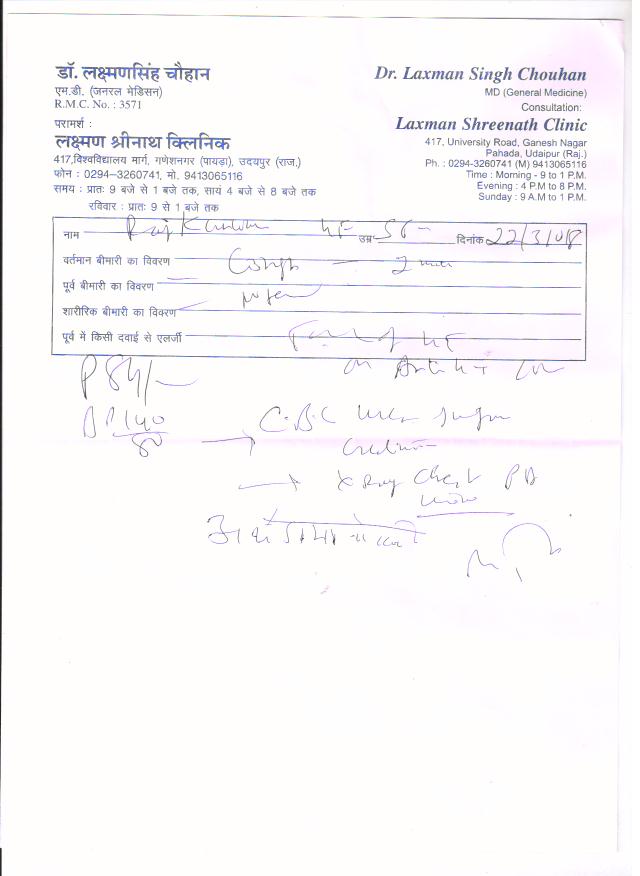 डॉ. लक्ष्मणसिंह चौहान
एम.डी. (जनरल मेडिसन)
R.M.C. No. : 3571
परामर्श :
लक्ष्मण श्रीनाथ क्लिनिक
417,विश्वविद्यालय मार्ग, गणेशनगर (पायड़ा), उदयपुर (राज.)
फोन : 0294–3260741, मो. 9413065116
समय : प्रातः 9 बजे से 1 बजे तक, सायं 4 बजे से 8 बजे तक
रविवार : प्रातः 9 से 1 बजे तक
Dr. Laxman Singh Chouhan
MD (General Medicine)
Consultation:
Laxman Shreenath Clinic
417, University Road, Ganesh Nagar
Pahada, Udaipur (Raj.)
Ph. : 0294-3260741 (M) 9413065116
Time : Morning - 9 to 1 P.M.
Evening : 4 P.M to 8 P.M.
Sunday : 9 A.M to 1 P.M.
नाम उम्र दिनांक 22/3/08
वर्तमान बीमारी का विवरण
पूर्व बीमारी का विवरण
शारीरिक बीमारी का विवरण
पूर्व में किसी दवाई से एलर्जी
P 84/-
BP 140
80
C.B.C Urea Sugar
X Ray Chest PA
View